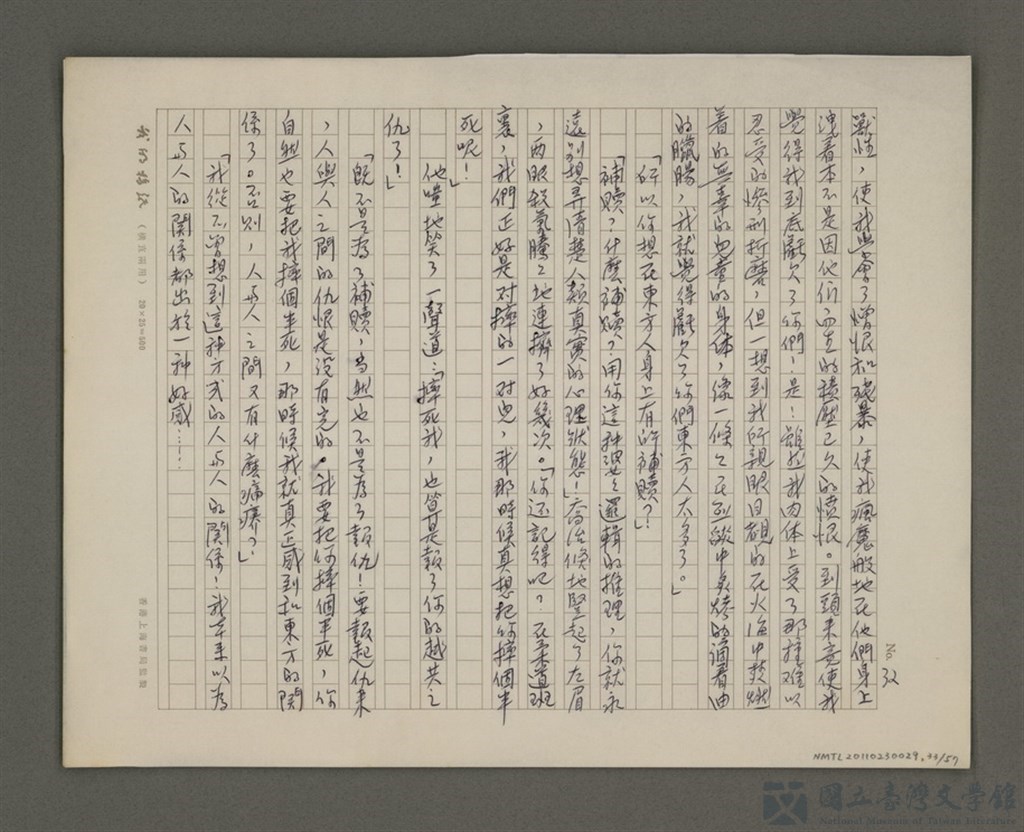 No. 32
獸性，使我學會了憎恨和殘暴，使我瘋魔般地在他們身上
洩着本不是因他们而生的積壓已久的憤恨。到頭來竟使我
覺得我到底虧欠了你們！是！雖然我肉体上受了那種难以
忍受的慘刑折磨，但一想到我所親眼目覩的在火海中焚燃
着的無辜的兒童的身体，像一條々在烈燄中炙烤的滴着油
的臘腸，我就覺得虧欠了你們東方人太多了。」
「所以你想在東方人身上有所補贖？」
「補贖？什麼補贖？用你這种婆々邏輯的推理，你就永
遠別想弄清楚人類真實的心理狀態！」喬治倏地竪起了左眉
，両眼殺氣騰々地連擠了好幾次。「你还記得吧？在柔道班
裏，我們正好是对摔的一对兒，我那時候真想把你摔個半
死呢！」
他嗤地笑了一聲道：「摔死我，也算是報了你的越共之
仇了！」
「既不是為了補贖，当然也不是為了報仇！要報起仇來
，人與人之間的仇恨是沒有完的。我要把你摔個半死，你
自然也要把我摔個半死，那時候我就真正感到和東方的関
係了。否则，人与人之間又有什麼痛癢？」
「我從不曾想到這种方式的人与人的関係！我本來以為
人与人的関係都出於一种好感……！
（横直両用） 20×25=500
香港上海書局監製
NMTL20110230029.33/57
國立臺灣文學館
National Museum of Taiwan Literature